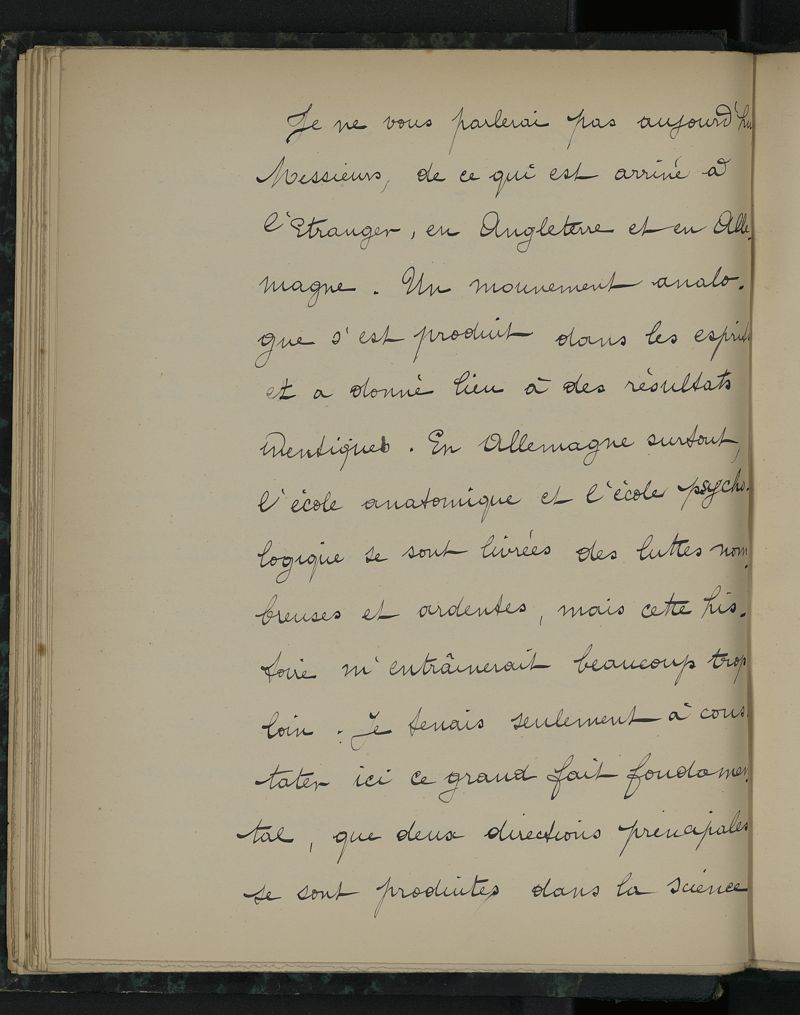 Je ne vous parlerai pas aujourd'hui
Messieurs, de ce qui est arrivé à
l'Etranger, en Angleterre et en Alle-
magne. Un mouvement analo-
gue s'est produit dans les esprits
et a donné lieu à des résultats
identiques. En Allemagne surtout,
l'école anatomique et l'école psycho-
logique se sont livrées des luttes nom-
breuses et ardentes, mais cette his-
toire m'entraînerait beaucoup trop
loin. Je tenais seulement à cons-
tater ici ce grand fait fondamen-
tal, que deux directions principales
se sont produites dans la science